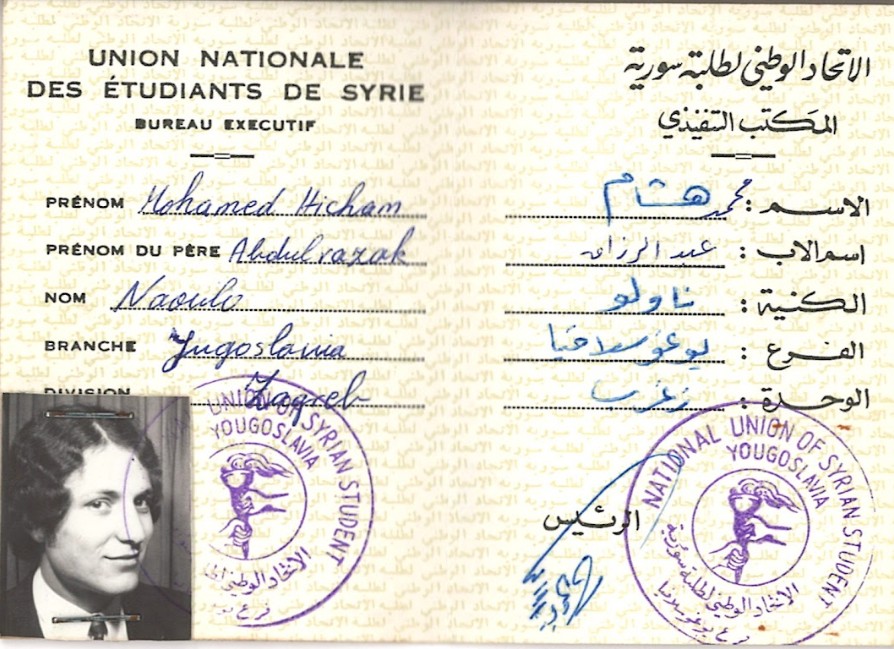 UNION NATIONALE
DES ÉTUDIANTS DE SYRIE
BUREAU EXECUTIF
PRÉNOM Mohamed Hicham
PRÉNOM DU PÈRE Abdulrazak
NOM Naoulo
BRANCHE Jugoslavia
DIVISION Zagreb
UNION OF SYRIAN STUDENT
YOUGOSLAVIA
الاتحاد الوطني
فرع
الاتحاد الوطني لطلبة سورية
المكتب التنفيذي
الاسم : محمد هشام
اسم الاب : عبد الرزاق
الكنية : ناولو
الفرع : يوغوسلافيا
الوحدة : زغرب
الرئيس
NATIONAL UNION OF SYRIAN STUDENT
YOUGOSLAVIA
الاتحاد الوطني لطلبة سورية
فرع يوغوسلافيا